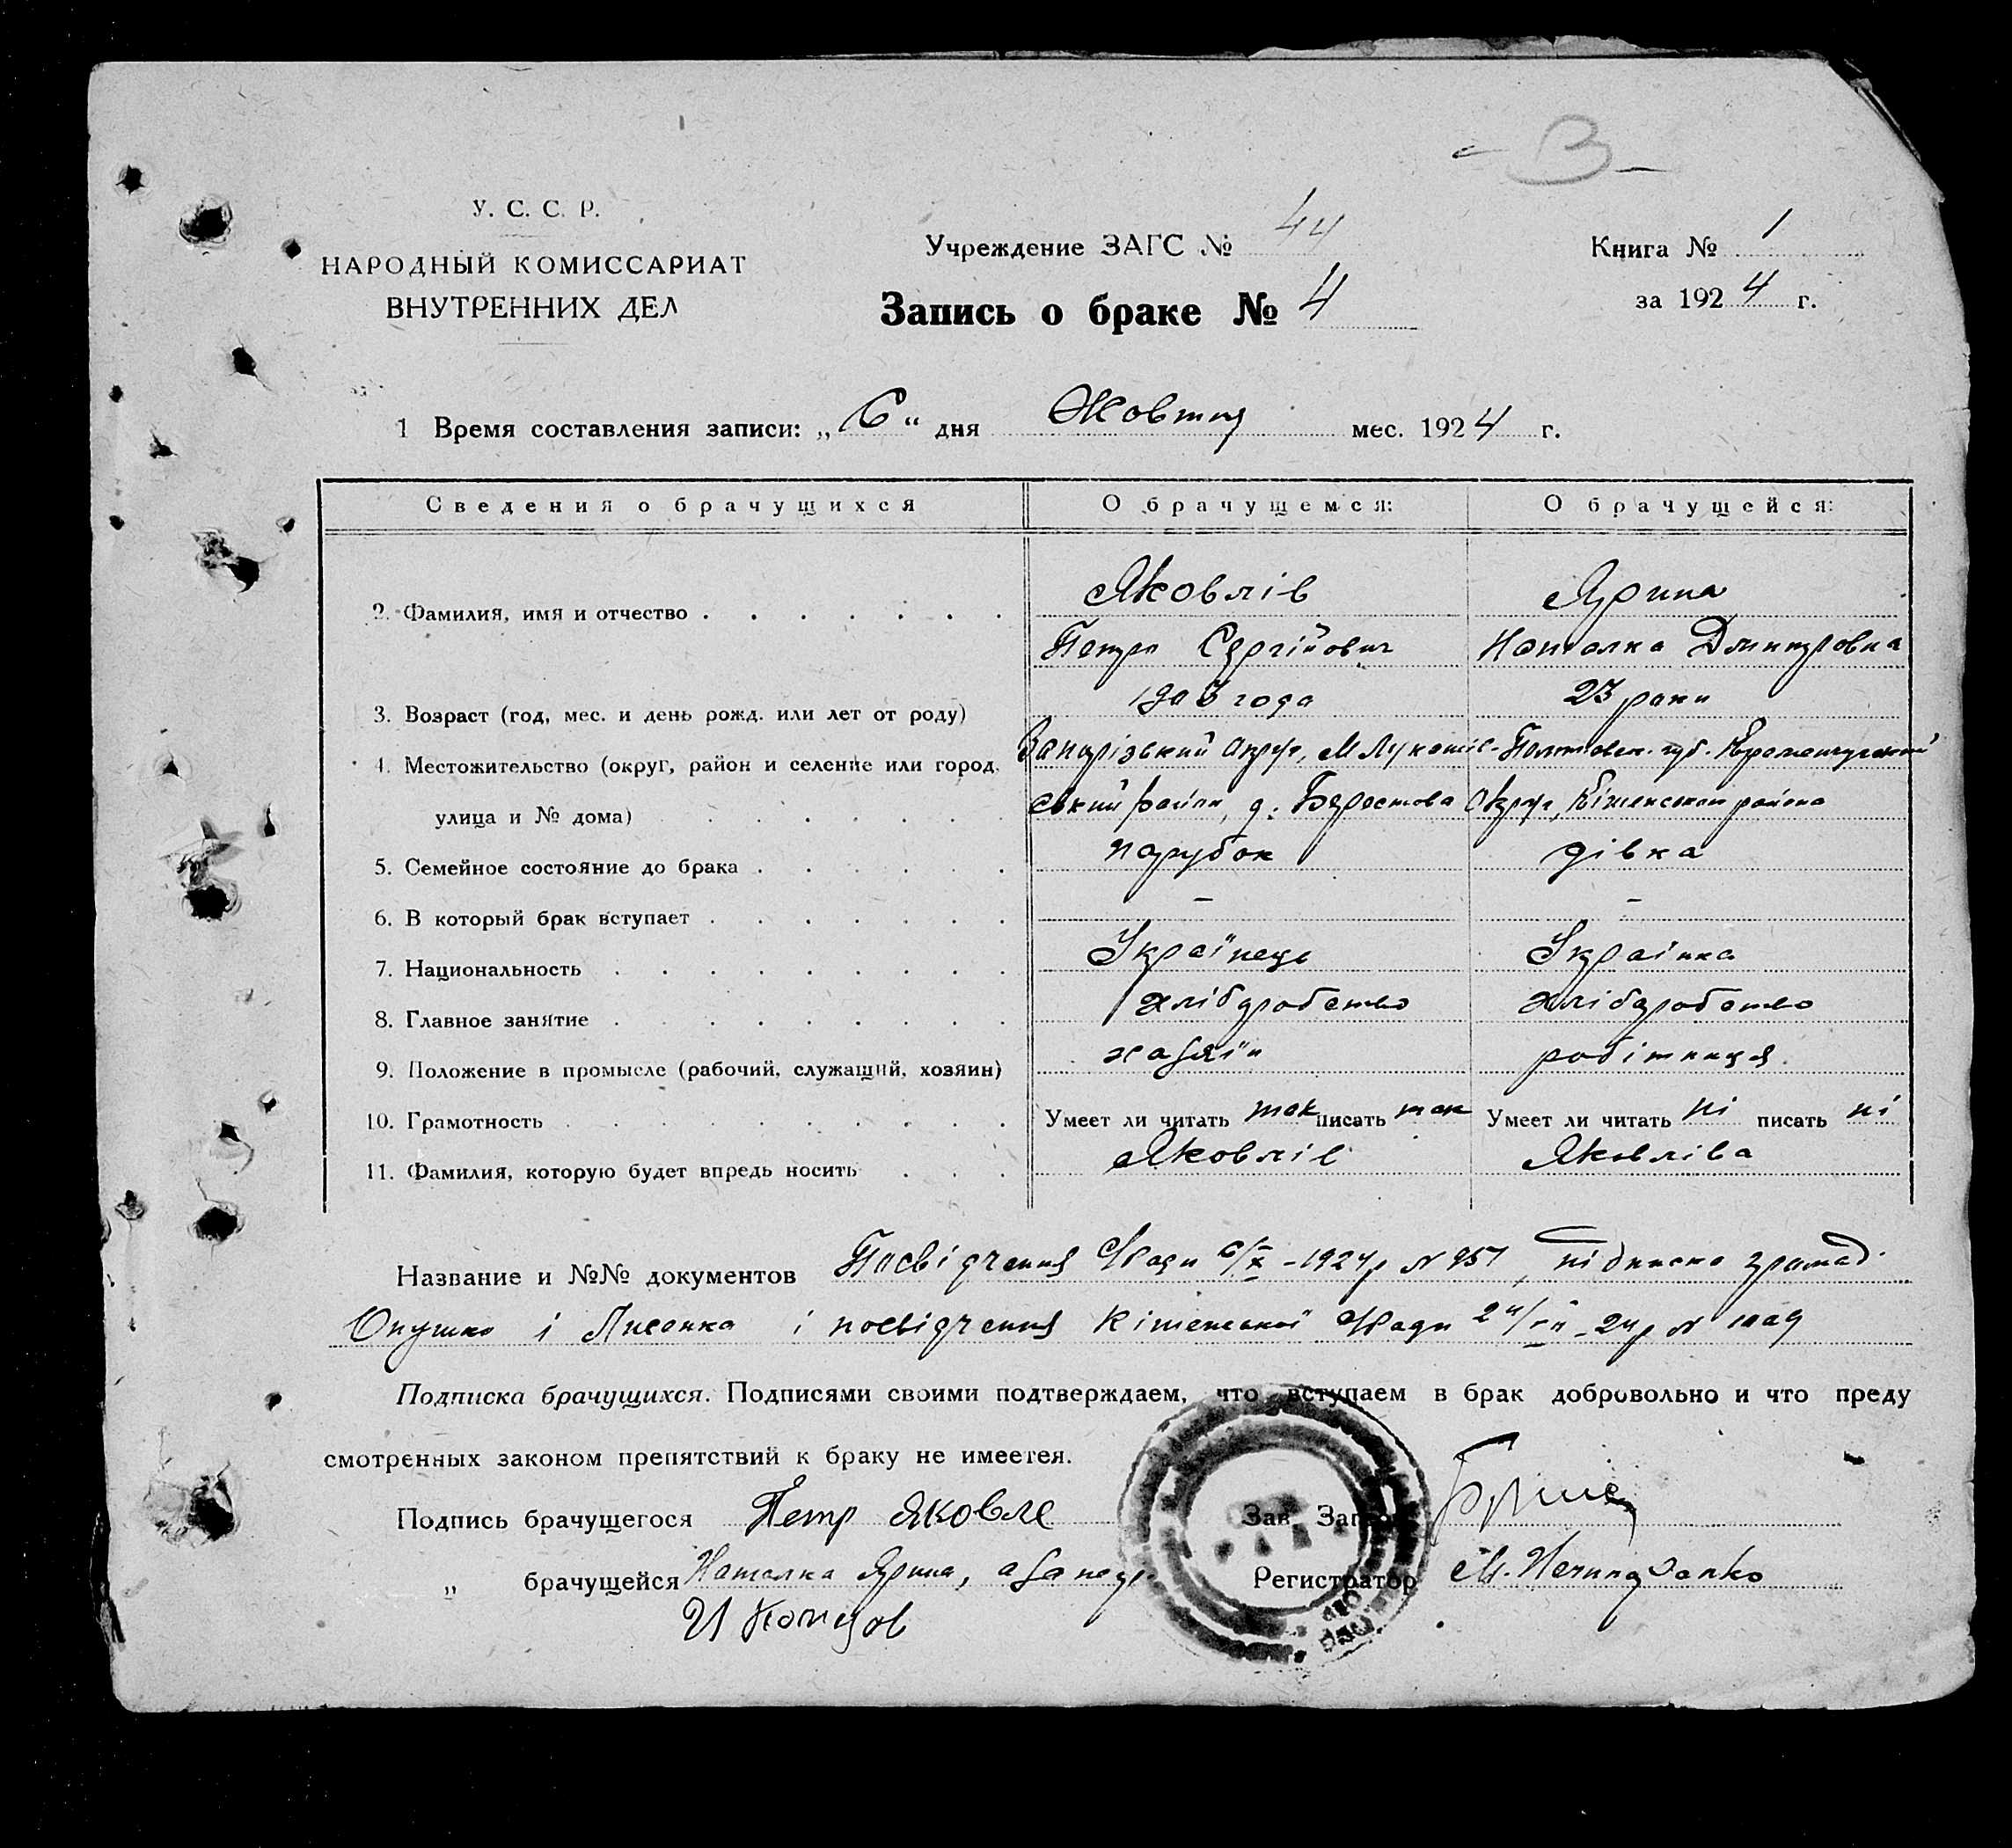 - 3 -
У. С. С. Р.
НАРОДНЫЙ КОМИССАРИАТ
ВНУТРЕННИХ ДЕЛ
Учреждение ЗАГС № 44
Запись о браке № 4
Книга № 1
за 1924 г.
1 Время составления записи: „6“ дня Жовтня мес. 1924 г.
Сведения о брачущихся О брачущемся: О брачущейся:
Яковлів Ярина
2. Фамилия, имя и отчество
Петро Сергійович Наталка Дмитровна
3. Возраст (год, мес. и день рожд. или лет от роду) 1903 года 23 роки
4. Местожительство (округ, район и селение или город, Запорізький Округ, М Лукашів- Полтавск. губ. Кременчугский
улица и № дома) ський район, д. Берестова Округ, Кішенського района
5. Семейное состояние до брака парубок дівка
6. В который брак вступает - -
7. Национальность Українець Українка
8. Главное занятие хліборобство хліборобство
9. Положение в промысле (рабочий, служащий, хозяин) хазяїн робітниця
10. Грамотность Умеет ли читать так писать так Умеет ли читать ні писать ні
11. Фамилия, которую будет впредь носить Яковлів Яковліва
Название и №№ документов Посвідчення Ради 6/X-1924р №957, підписка громад
і Лисенка і посвідчення Кішенської Ради
Подписка брачущихся. Подписями своими подтверждаем, что вступаем в брак добровольно и что преду
смотренных законом препятствий к браку не имеется.
Подпись брачущегося Петр Яковле Зав. Загсом
„ брачущейся Наталка Ярина, а за неgr Регистратор